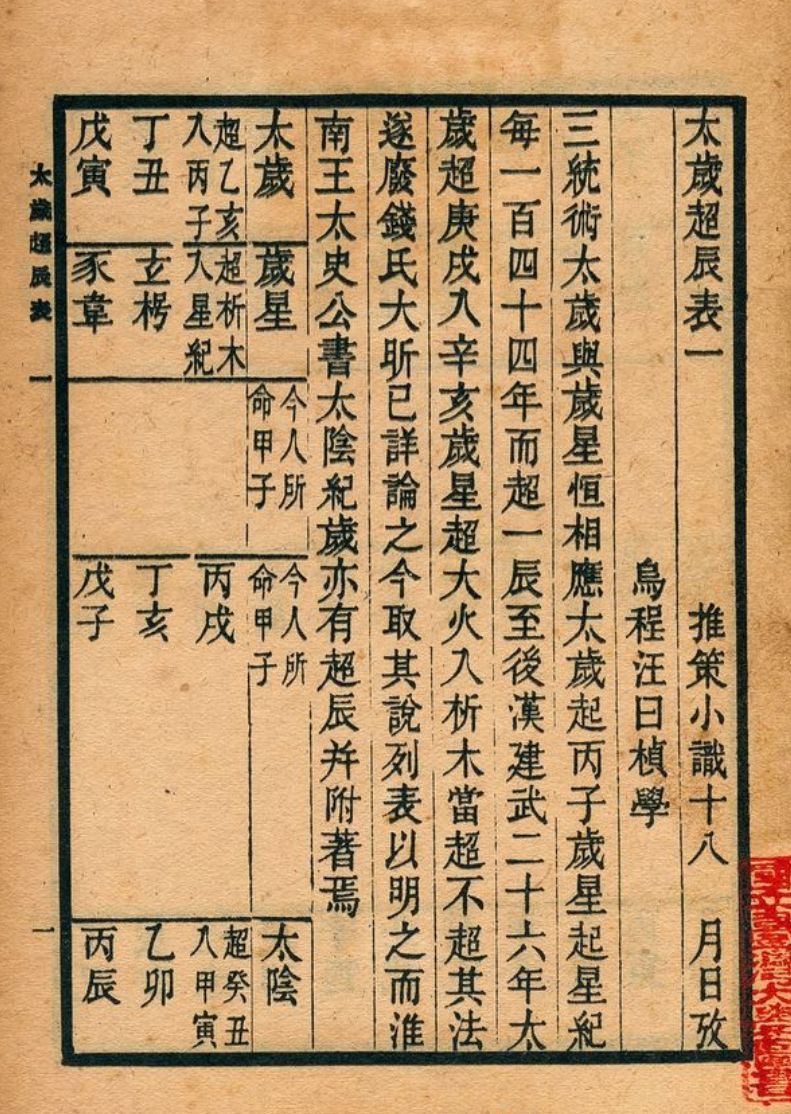 太歲超辰表一 推策小識十八 月日攷
烏程汪曰楨學
三統術太歲與歲星恒相應太歲起丙子歲星起星紀
每一百四十四年而超一辰至後漢建武二十六年太
歲超庚戌入辛亥歲星超大火入析木當超不超其法
遂廢錢氏大昕已詳論之今取其說列表以明之而淮
南王太史公書太陰紀歲亦有超辰并附著焉
太歲 歲星 今人所命甲子 今人所命甲子 太陰
超乙亥入丙子 超析木入星紀 丙戌 超癸丑入甲寅
丁丑 玄枵 丁亥 乙卯
戊寅 豕韋 戊子 丙辰
太歲超辰表一 一